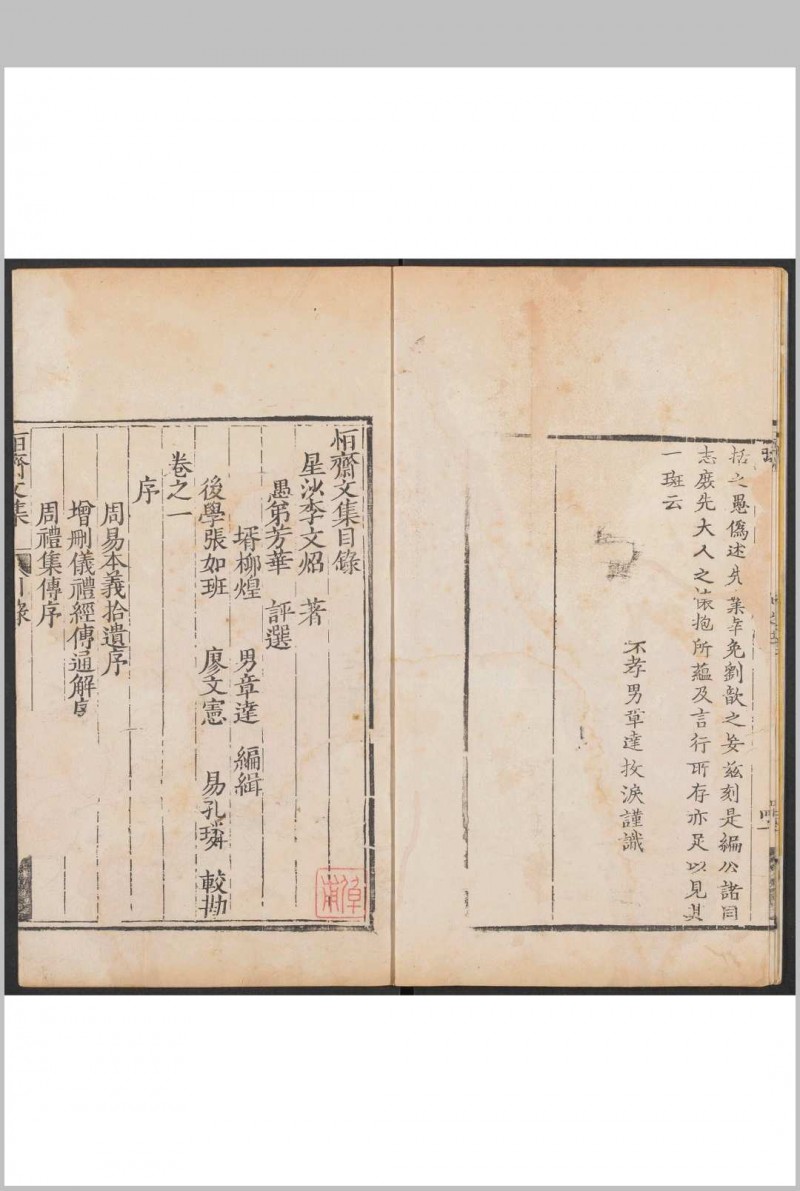 括之愚僞述先業幸免劉歆之妄茲刻是編公諸同
志庶先大人之懷抱所蘊及言行所存亦足以見其
一斑云
不孝男章達抆淚謹識
恒齋文集目錄
星沙李文炤 著
愚弟芳華 評選
壻柳煌 男章達 編緝
後學張如班 廖文憲 易孔璘 較勘
卷之一
序
周易本義拾遺序
增刪儀禮經傳通解序
周禮集傳序
恒齋文集 目錄